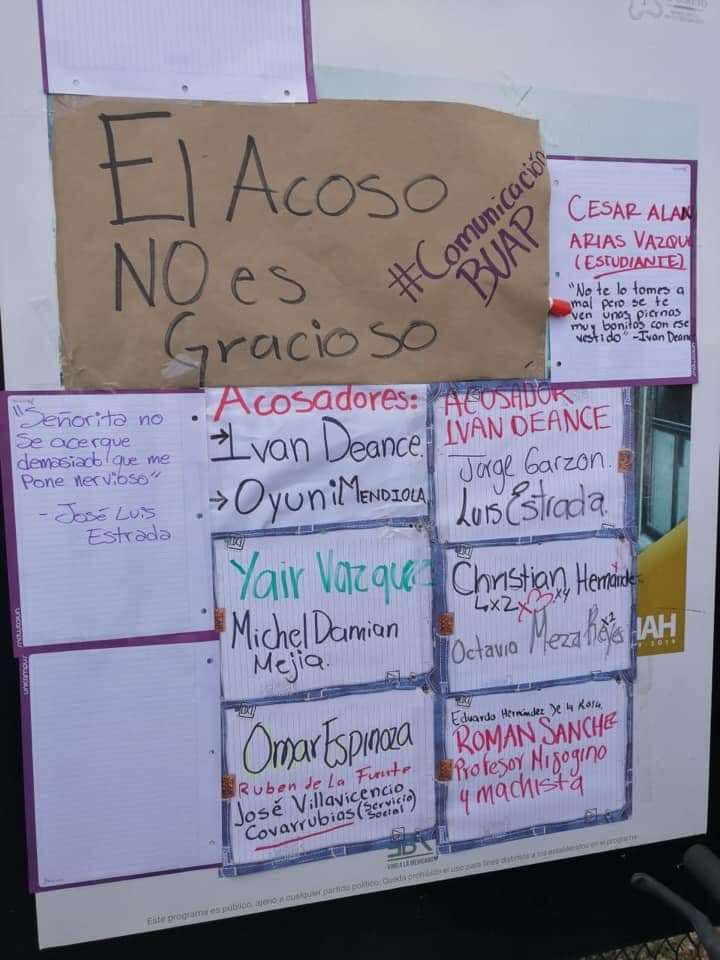 El Acoso
NO es
Gracioso
#Comunicación
BUAP
CESAR ALAN
ARIAS VAZQU
(ESTUDIANTE)
"No te lo tomes a
mal pero se te
ven unas piernas
muy bonitas con ese
vestido" -Ivan Deance
"Señorita no
se acerque
demasiado que me
pone nervioso"
- José Luis
Estrada
Acosadores:
→ Ivan Deance.
→ Oyuni MENDIOLA
ACOSADOR
IVAN DEANCE
Jorge Garzon.
Luis Estrada.
Yair Vazquez
Michel Damian
Mejia.
Christian Hernández
4x2 x3 x4
Octavio Meza Reyes x2
Omar Espinoza
Ruben de La Fuente
José Villavicencio
Covarrubias (Servicio
Social)
Eduardo Hernández De la Rosa
ROMAN SANCHE
Profesor Misogino
y machista
IAH
Este programa es público, ajeno a cualquier partido político. Queda prohibido el uso para fines distintos a los establecidos en el programa